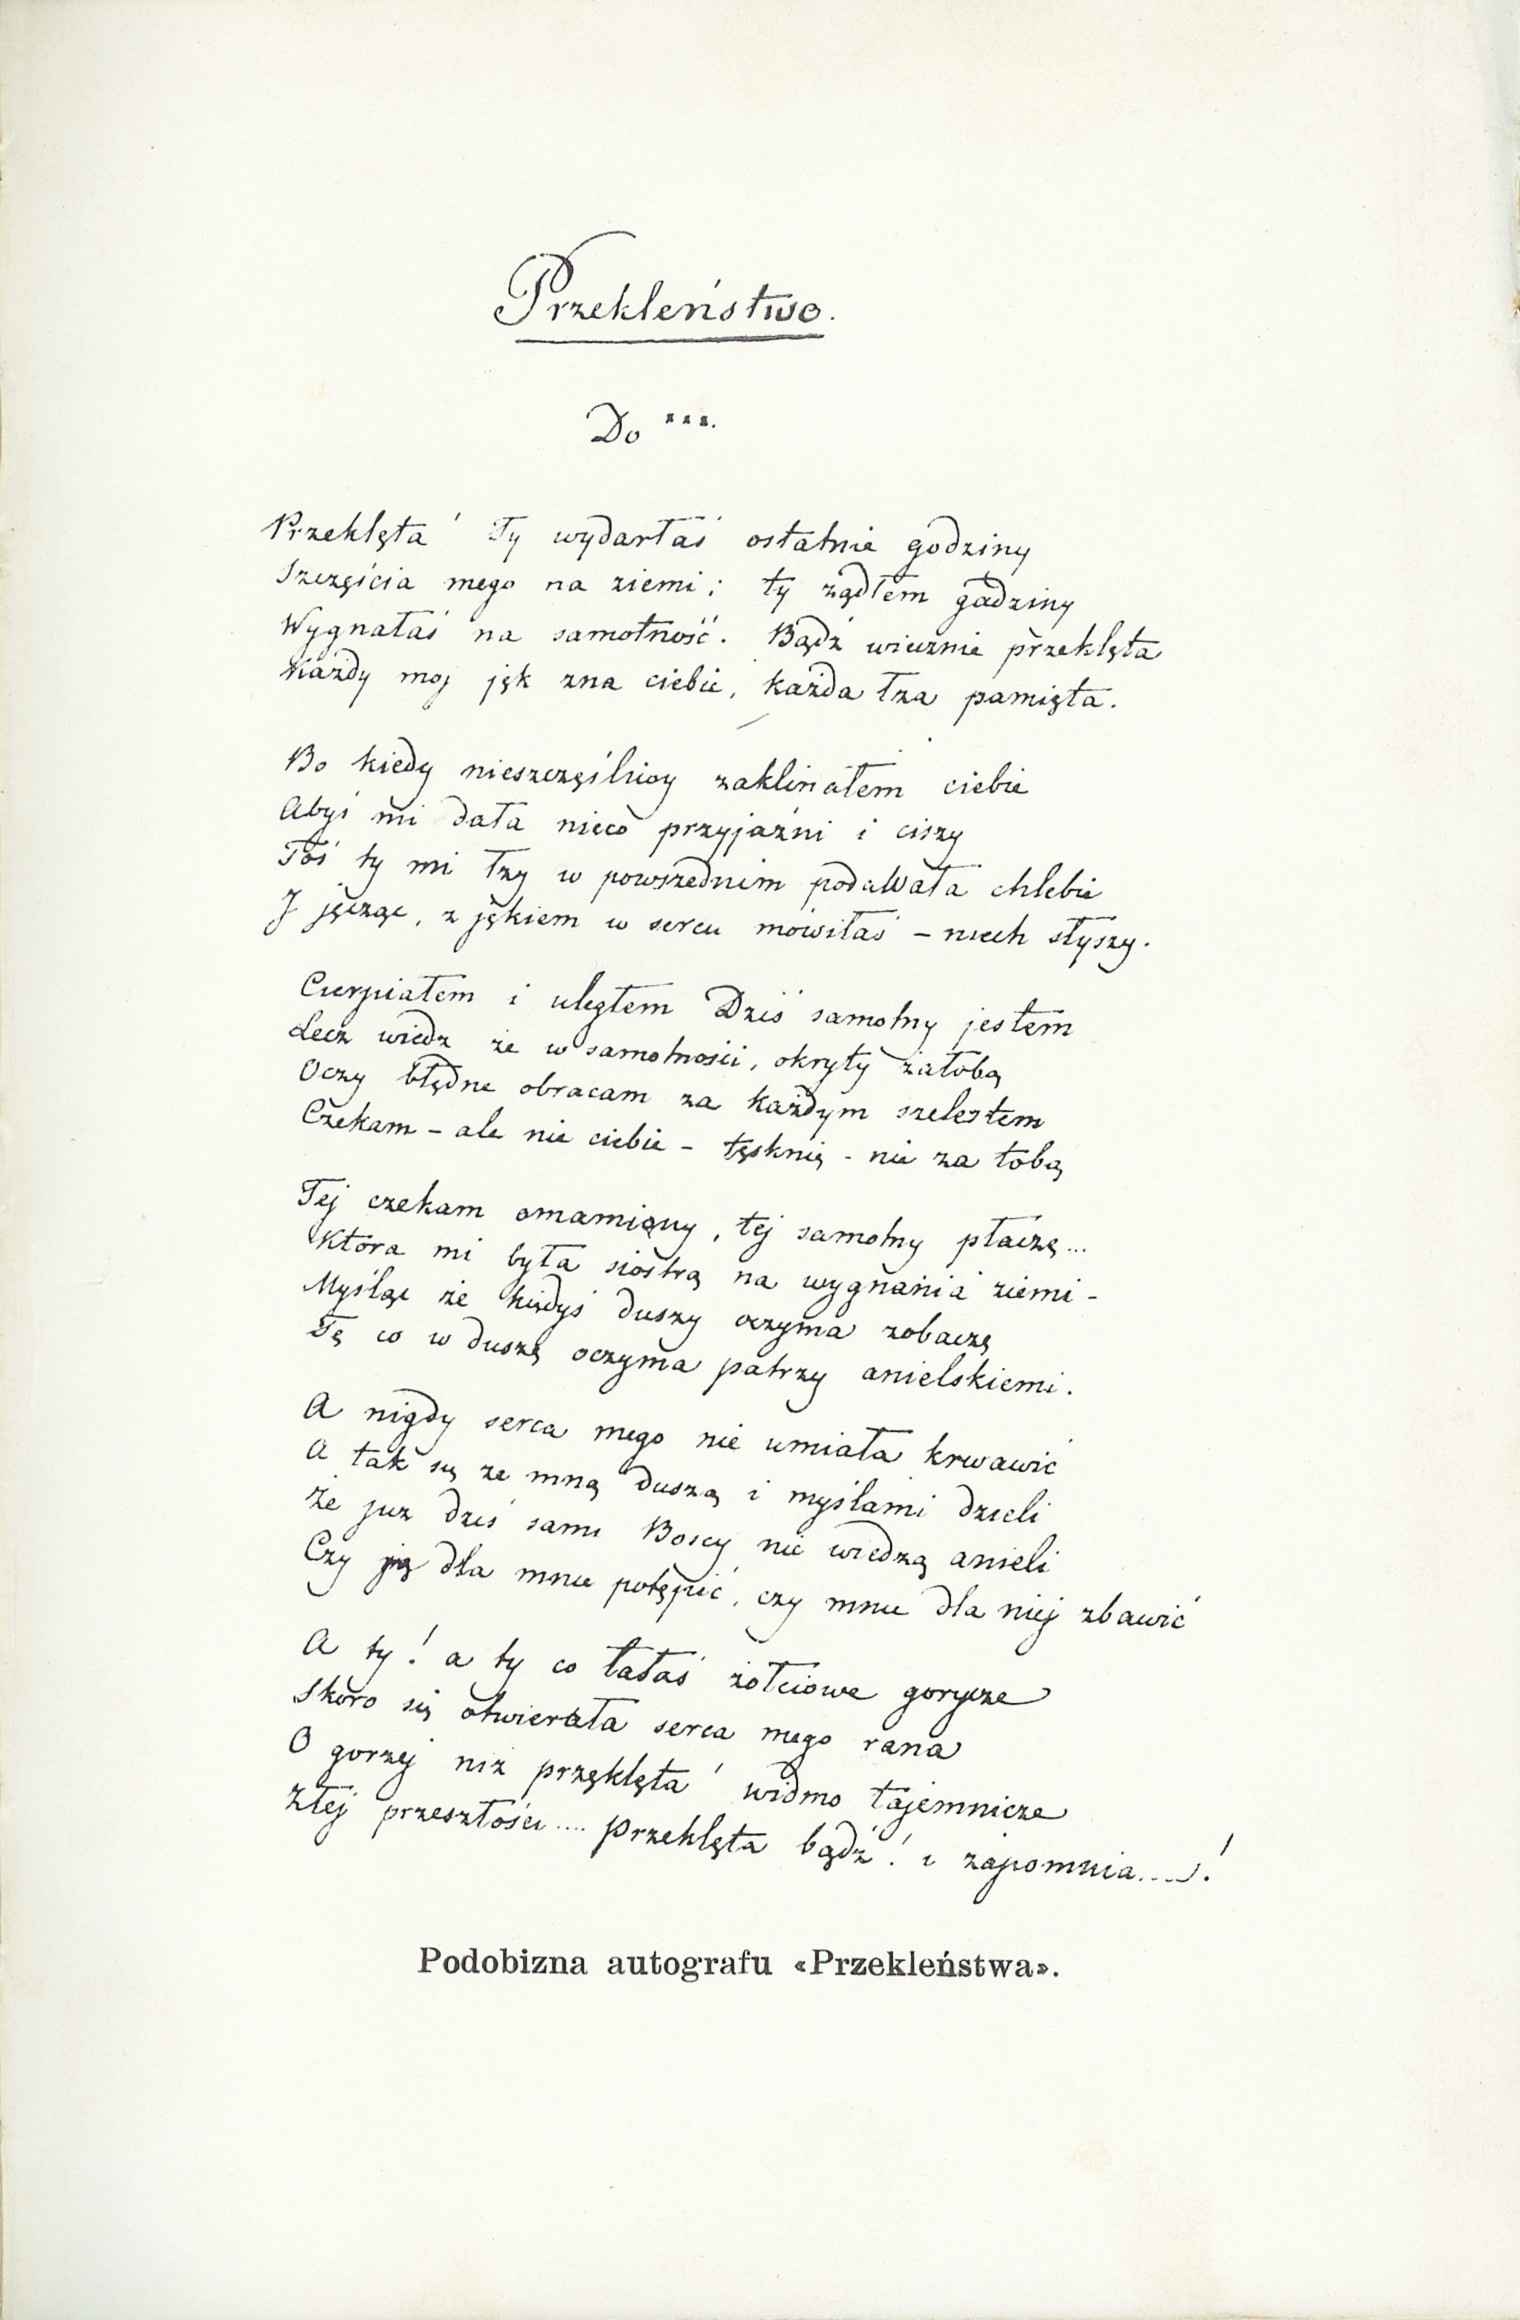 Przekleństwo.
Do ***.
Przeklęta! Ty wydarłaś ostatnie godziny
Szczęścia mego na ziemi; ty żądłem gadziny
Wygnałaś na samotność. Bądź wiecznie przeklęta
Każdy moj jęk zna ciebie, każda łza pamięta.
Bo kiedy nieszczęśliwy zaklinałem ciebie
Abyś mi dała nieco przyjaźni i ciszy
Toś ty mi łzy w powszednim podawała chlebie
I jęcząc, z jękiem w sercu mówiłaś – niech słyszy.
Cierpiałem i uległem Dziś samotny jestem
Lecz wiedz że w samotności, okryty żałobą
Oczy błędne obracam za każdym szelestem
Czekam – ale nie ciebie – tęsknię – nie za tobą
Tej czekam omamiony, tej samotny płaczę...
Która mi była siostrą na wygnania ziemi –
Myśląc że kiedyś duszy oczyma zobaczę
Tę co w duszę oczyma patrzy anielskiemi.
A nigdy serca mego nie umiała krwawić
A tak się ze mną duszą i myślami dzieli
Że juz dziś sami Boscy nie wiedzą anieli
Czy ją dla mnie potępić, czy mnie dla niej zbawić
A ty! a ty co łałaś żółciowe gorycze
Skoro się otwierała serca mego rana
O gorzej niż przeklęta! widmo tajemnicze
Złej przeszłości.... przeklęta bądź! i zapomnia....!
Podobizna autografu «Przekleństwa».